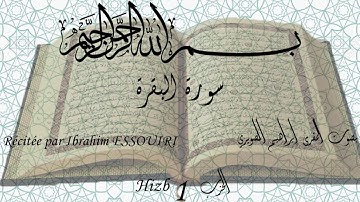 بسم الله الرحمن الرحيم
سورة البقرة
Récitée par Ibrahim ESSOUIRI
بصوت المقرئ إبراهيم الصويري
Hizb 1 الحزب